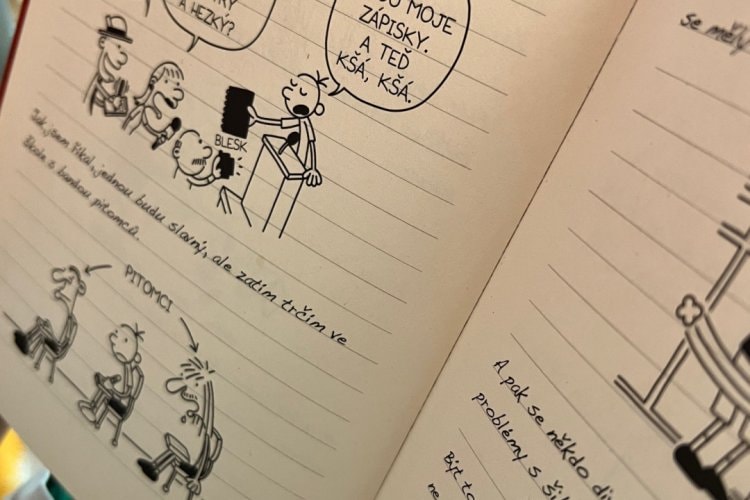 A HEZKÝ?
MOJE
ZÁPISKY.
A TEĎ
KŠÁ, KŠÁ.
BLESK
Jak jsem říkal, jednou budu slavný, ale zatím trčím ve
škole s bandou pitomců.
PITOMCI
se měly
A pak se někdo
problémy s
Být
ne